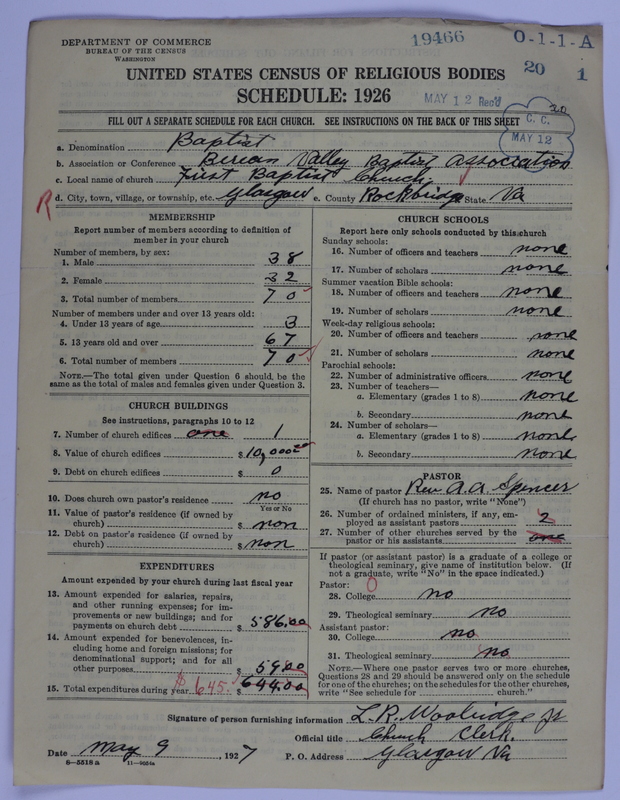 DEPARTMENT OF COMMERCE
BUREAU OF THE CENSUS
WASHINGTON
19466
0-1-1-A
20 1
UNITED STATES CENSUS OF RELIGIOUS BODIES
SCHEDULE: 1926
MAY 12 Rec'd
20
C. C.
MAY 12
FILL OUT A SEPARATE SCHEDULE FOR EACH CHURCH. SEE INSTRUCTIONS ON THE BACK OF THIS SHEET
a. Denomination Baptist
b. Association or Conference Berean Valley Baptist Association
c. Local name of church First Baptist Church
R d. City, town, village, or township, etc. Glasgow e. County Rockbridge State Va
MEMBERSHIP
Report number of members according to definition of
member in your church
Number of members, by sex:
1. Male 38
2. Female 32
3. Total number of members 70
Number of members under and over 13 years old:
4. Under 13 years of age 3
5. 13 years old and over 67
6. Total number of members 70
NOTE.—The total given under Question 6 should be the
same as the total of males and females given under Question 3.
CHURCH BUILDINGS
See instructions, paragraphs 10 to 12
7. Number of church edifices one 1
8. Value of church edifices $ 10,000.00
9. Debt on church edifices $ 0
10. Does church own pastor's residence no
Yes or No
11. Value of pastor's residence (if owned by
church) $ non
12. Debt on pastor's residence (if owned by
church) $ non
EXPENDITURES
Amount expended by your church during last fiscal year
13. Amount expended for salaries, repairs,
and other running expenses; for im-
provements or new buildings; and for
payments on church debt $ 586.00
14. Amount expended for benevolences, in-
cluding home and foreign missions; for
denominational support; and for all
other purposes $ 59.00
15. Total expenditures during year $645. $ 644.00
CHURCH SCHOOLS
Report here only schools conducted by this church
Sunday schools:
16. Number of officers and teachers none
17. Number of scholars none
Summer vacation Bible schools:
18. Number of officers and teachers none
19. Number of scholars none
Week-day religious schools:
20. Number of officers and teachers none
21. Number of scholars none
Parochial schools:
22. Number of administrative officers none
23. Number of teachers—
a. Elementary (grades 1 to 8) none
b. Secondary none
24. Number of scholars—
a. Elementary (grades 1 to 8) none
b. Secondary none
PASTOR
25. Name of pastor Rev. A. A. Spencer
(If church has no pastor, write "None")
26. Number of ordained ministers, if any, em-
ployed as assistant pastors 2
27. Number of other churches served by the
pastor or his assistants one
If pastor (or assistant pastor) is a graduate of a college or
theological seminary, give name of institution below. (If
not a graduate, write "No" in the space indicated.)
Pastor: 0
28. College no
29. Theological seminary no
Assistant pastor:
30. College no
31. Theological seminary no
NOTE.—Where one pastor serves two or more churches,
Questions 28 and 29 should be answered only on the schedule
for one of the churches; on the schedules for the other churches,
write "See schedule for church."
Signature of person furnishing information L. R. Woolridge Jr
Official title Church Clerk.
Date May 9, 1927 P. O. Address Glasgow Va
8-5518 a 11-9054a